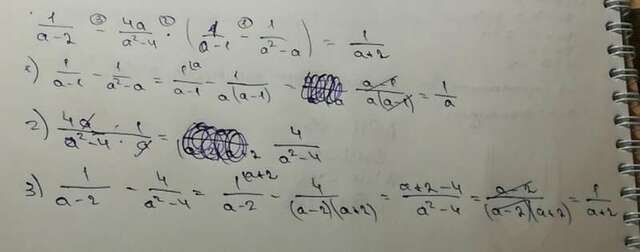 1/(a-2) - 4a/(a²-4) · (1/(a-1) - 1/(a²-a)) = 1/(a+2)
1) 1/(a-1) - 1/(a²-a) = 1/(a-1) - 1/(a(a-1)) = (a-1)/(a(a-1)) = 1/a
2) (4a · 1)/(a²-4 · a) = 4/(a²-4)
3) 1/(a-2) - 4/(a²-4) = 1/(a-2) - 4/((a-2)(a+2)) = (a+2-4)/(a²-4) = (a-2)/((a-2)(a+2)) = 1/(a+2)